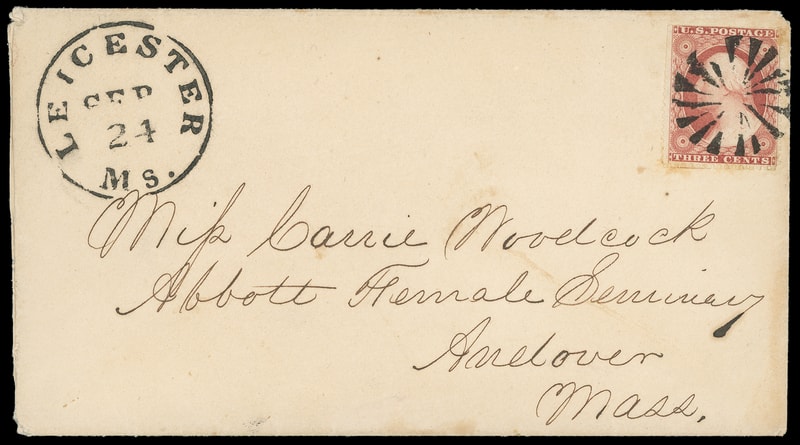 LEICESTER
SEP
24
Ms.
U.S. POSTAGE
THREE CENTS
Miſs Carrie Woodcock
Abbott Female Seminary
Andover
Mass.